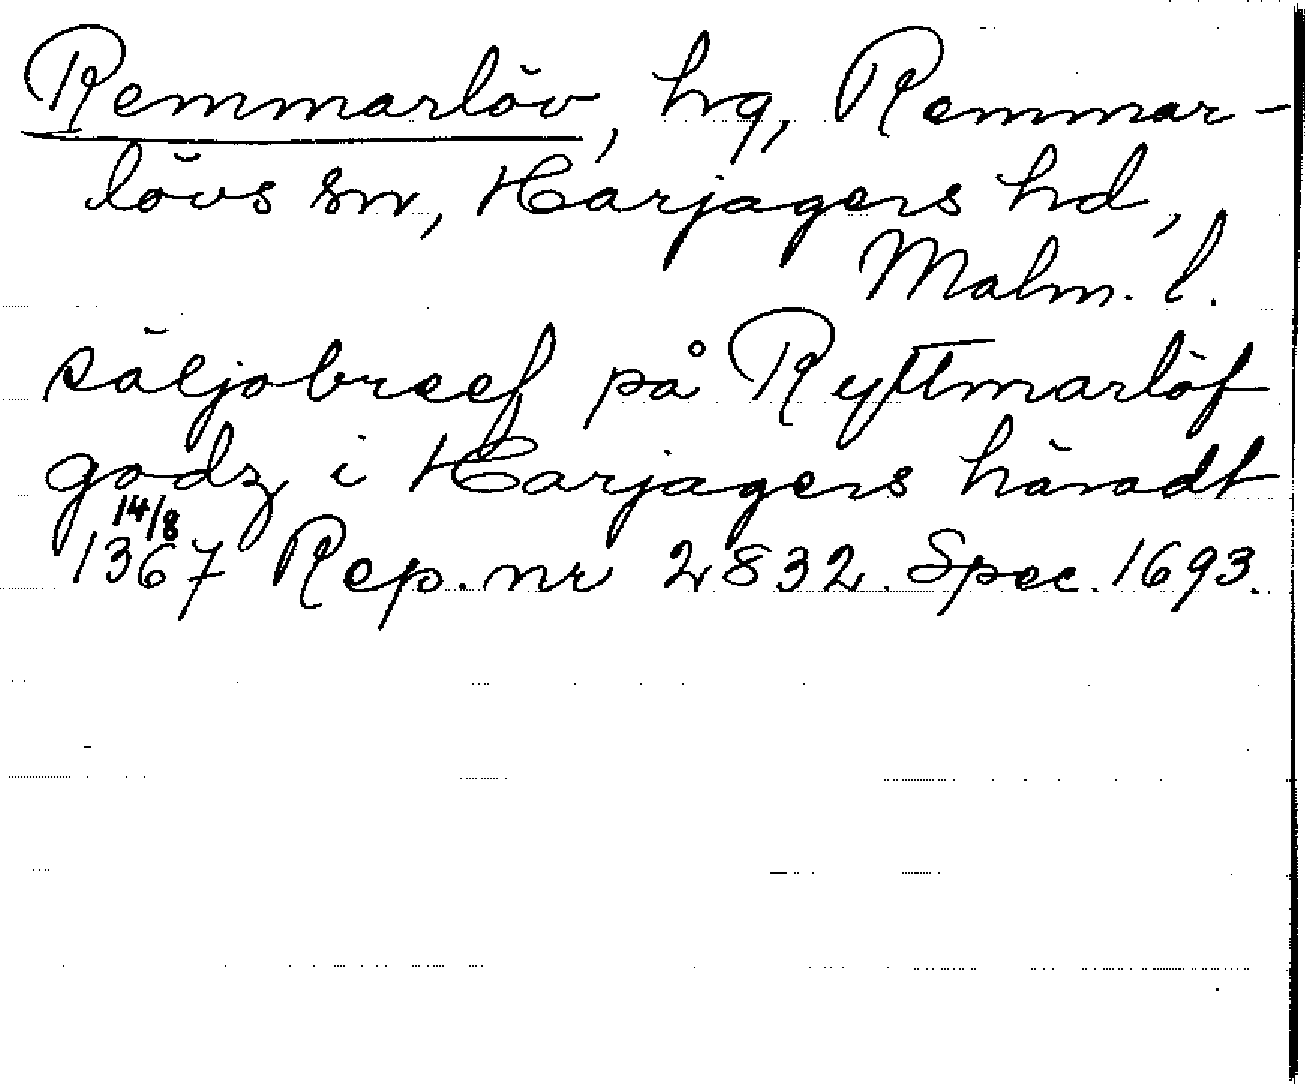 Remmarlöv, hg, Remmar-
lövs sn, Harjagers hd,
Malm. l.
säljobreef på Ryttmarlöf
godz i Harjagers häradt
14/8
1367 Rep. nr 2832. Spec. 1693.